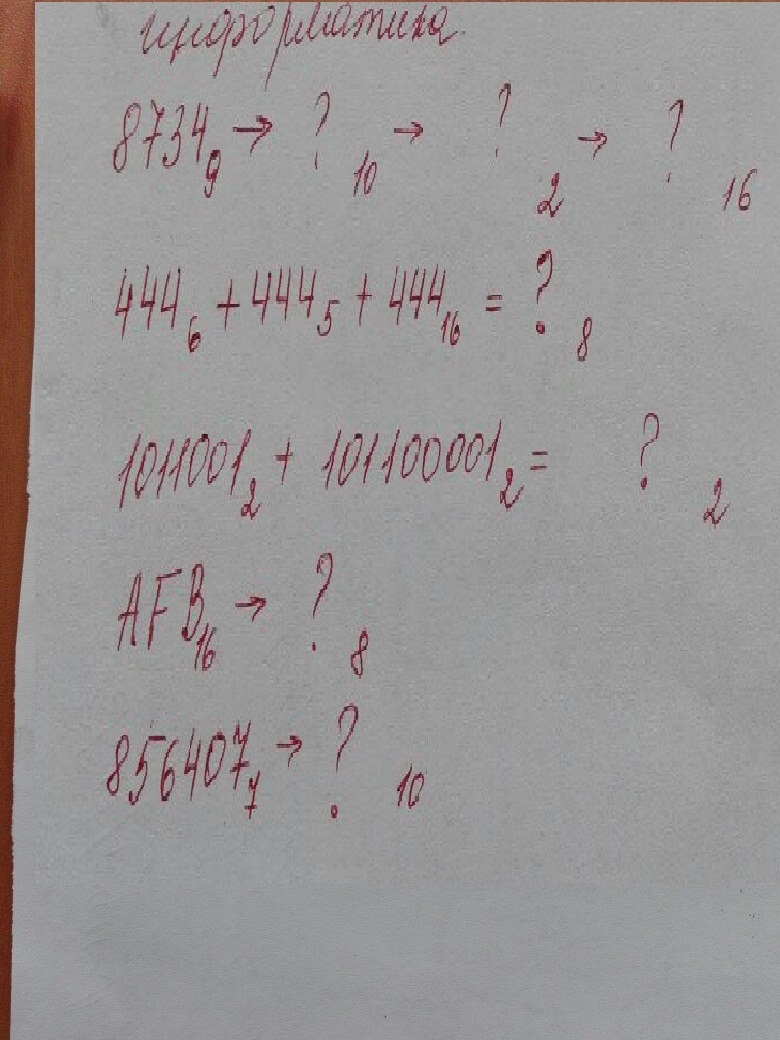 информатика.
8734₉ → ?₁₀ → ?₂ → ?₁₆
444₆ + 444₅ + 444₁₆ = ?₈
1011001₂ + 101100001₂ = ?₂
AFB₁₆ → ?₈
856407₇ → ?₁₀